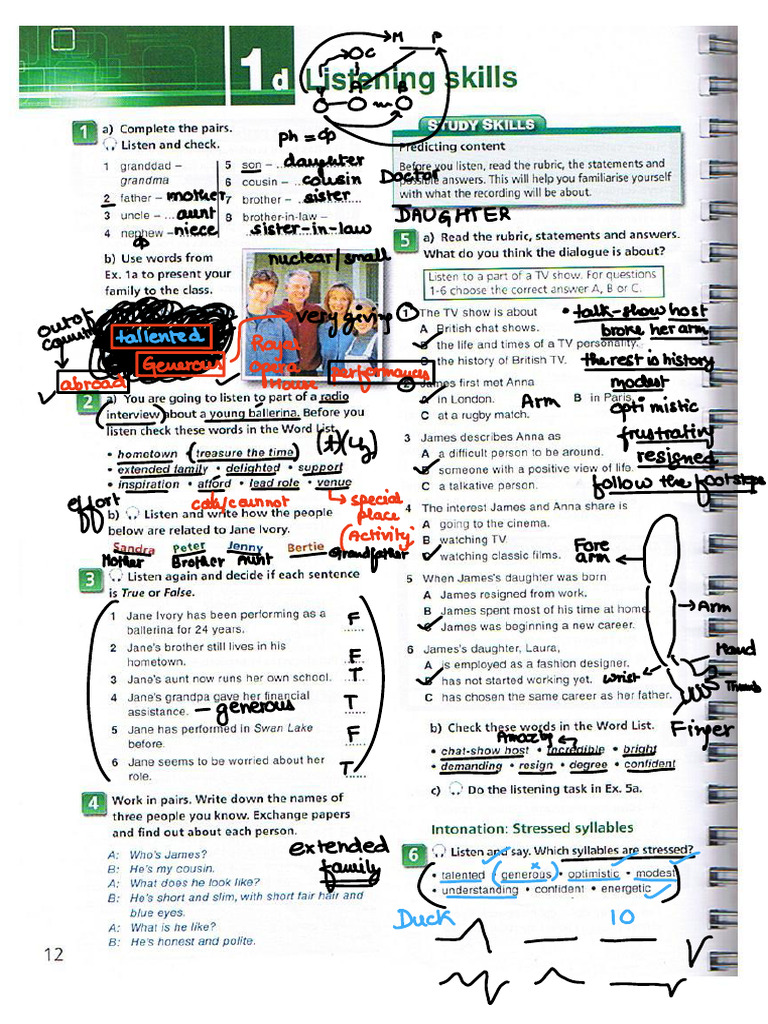 1d Listening skills
M P
C
A
Y B
1 a) Complete the pairs.
Listen and check.
ph = Φ
1 granddad –
grandma
2 father – mother
3 uncle – ... aunt
4 nephew – niece
Φ
5 son – daughter
6 cousin – ... cousin
7 brother – sister
8 brother-in-law –
sister-in-law
b) Use words from
Ex. 1a to present your
family to the class.
nuclear/small
out of
country
tallented
Generous
very giving
Royal
Opera
House
performances
abroad
2 a) You are going to listen to part of a radio
interview about a young ballerina. Before you
listen check these words in the Word List.
• hometown • treasure the time
• extended family • delighted • support
• inspiration • afford • lead role • venue
effort
can/cannot
special
place
(Activity)
b) Listen and write how the people
below are related to Jane Ivory.
Sandra Peter Jenny Bertie
Mother Brother Aunt Grandfather
3 Listen again and decide if each sentence
is True or False.
1 Jane Ivory has been performing as a
ballerina for 24 years. F
2 Jane's brother still lives in his
hometown. F
3 Jane's aunt now runs her own school. T
4 Jane's grandpa gave her financial
assistance. – generous T
5 Jane has performed in Swan Lake
before. F
6 Jane seems to be worried about her
role. T
4 Work in pairs. Write down the names of
three people you know. Exchange papers
and find out about each person.
extended
family
A: Who's James?
B: He's my cousin.
A: What does he look like?
B: He's short and slim, with short fair hair and
blue eyes.
A: What is he like?
B: He's honest and polite.
12
STUDY SKILLS
Predicting content
Before you listen, read the rubric, the statements and
possible answers. This will help you familiarise yourself
with what the recording will be about.
Doctor
DAUGHTER
5 a) Read the rubric, statements and answers.
What do you think the dialogue is about?
Listen to a part of a TV show. For questions
1-6 choose the correct answer A, B or C.
1 The TV show is about
A British chat shows.
B the life and times of a TV personality.
C the history of British TV.
• talk-show host
broke her arm
the rest is history
modest
optimistic
frustrating
resigned
follow the footsteps
2 James first met Anna
A in London. B in Paris.
C at a rugby match.
Arm
3 James describes Anna as
A a difficult person to be around.
B someone with a positive view of life.
C a talkative person.
4 The interest James and Anna share is
A going to the cinema.
B watching TV.
C watching classic films.
5 When James's daughter was born
A James resigned from work.
B James spent most of his time at home.
C James was beginning a new career.
6 James's daughter, Laura,
A is employed as a fashion designer.
B has not started working yet.
C has chosen the same career as her father.
Fore
arm
Arm
Hand
wrist
Thumb
Finger
b) Check these words in the Word List.
Amazing
• chat-show host • incredible • bright
• demanding • resign • degree • confident
c) Do the listening task in Ex. 5a.
Intonation: Stressed syllables
6 Listen and say. Which syllables are stressed?
• talented • generous • optimistic • modest
• understanding • confident • energetic
Duck 10